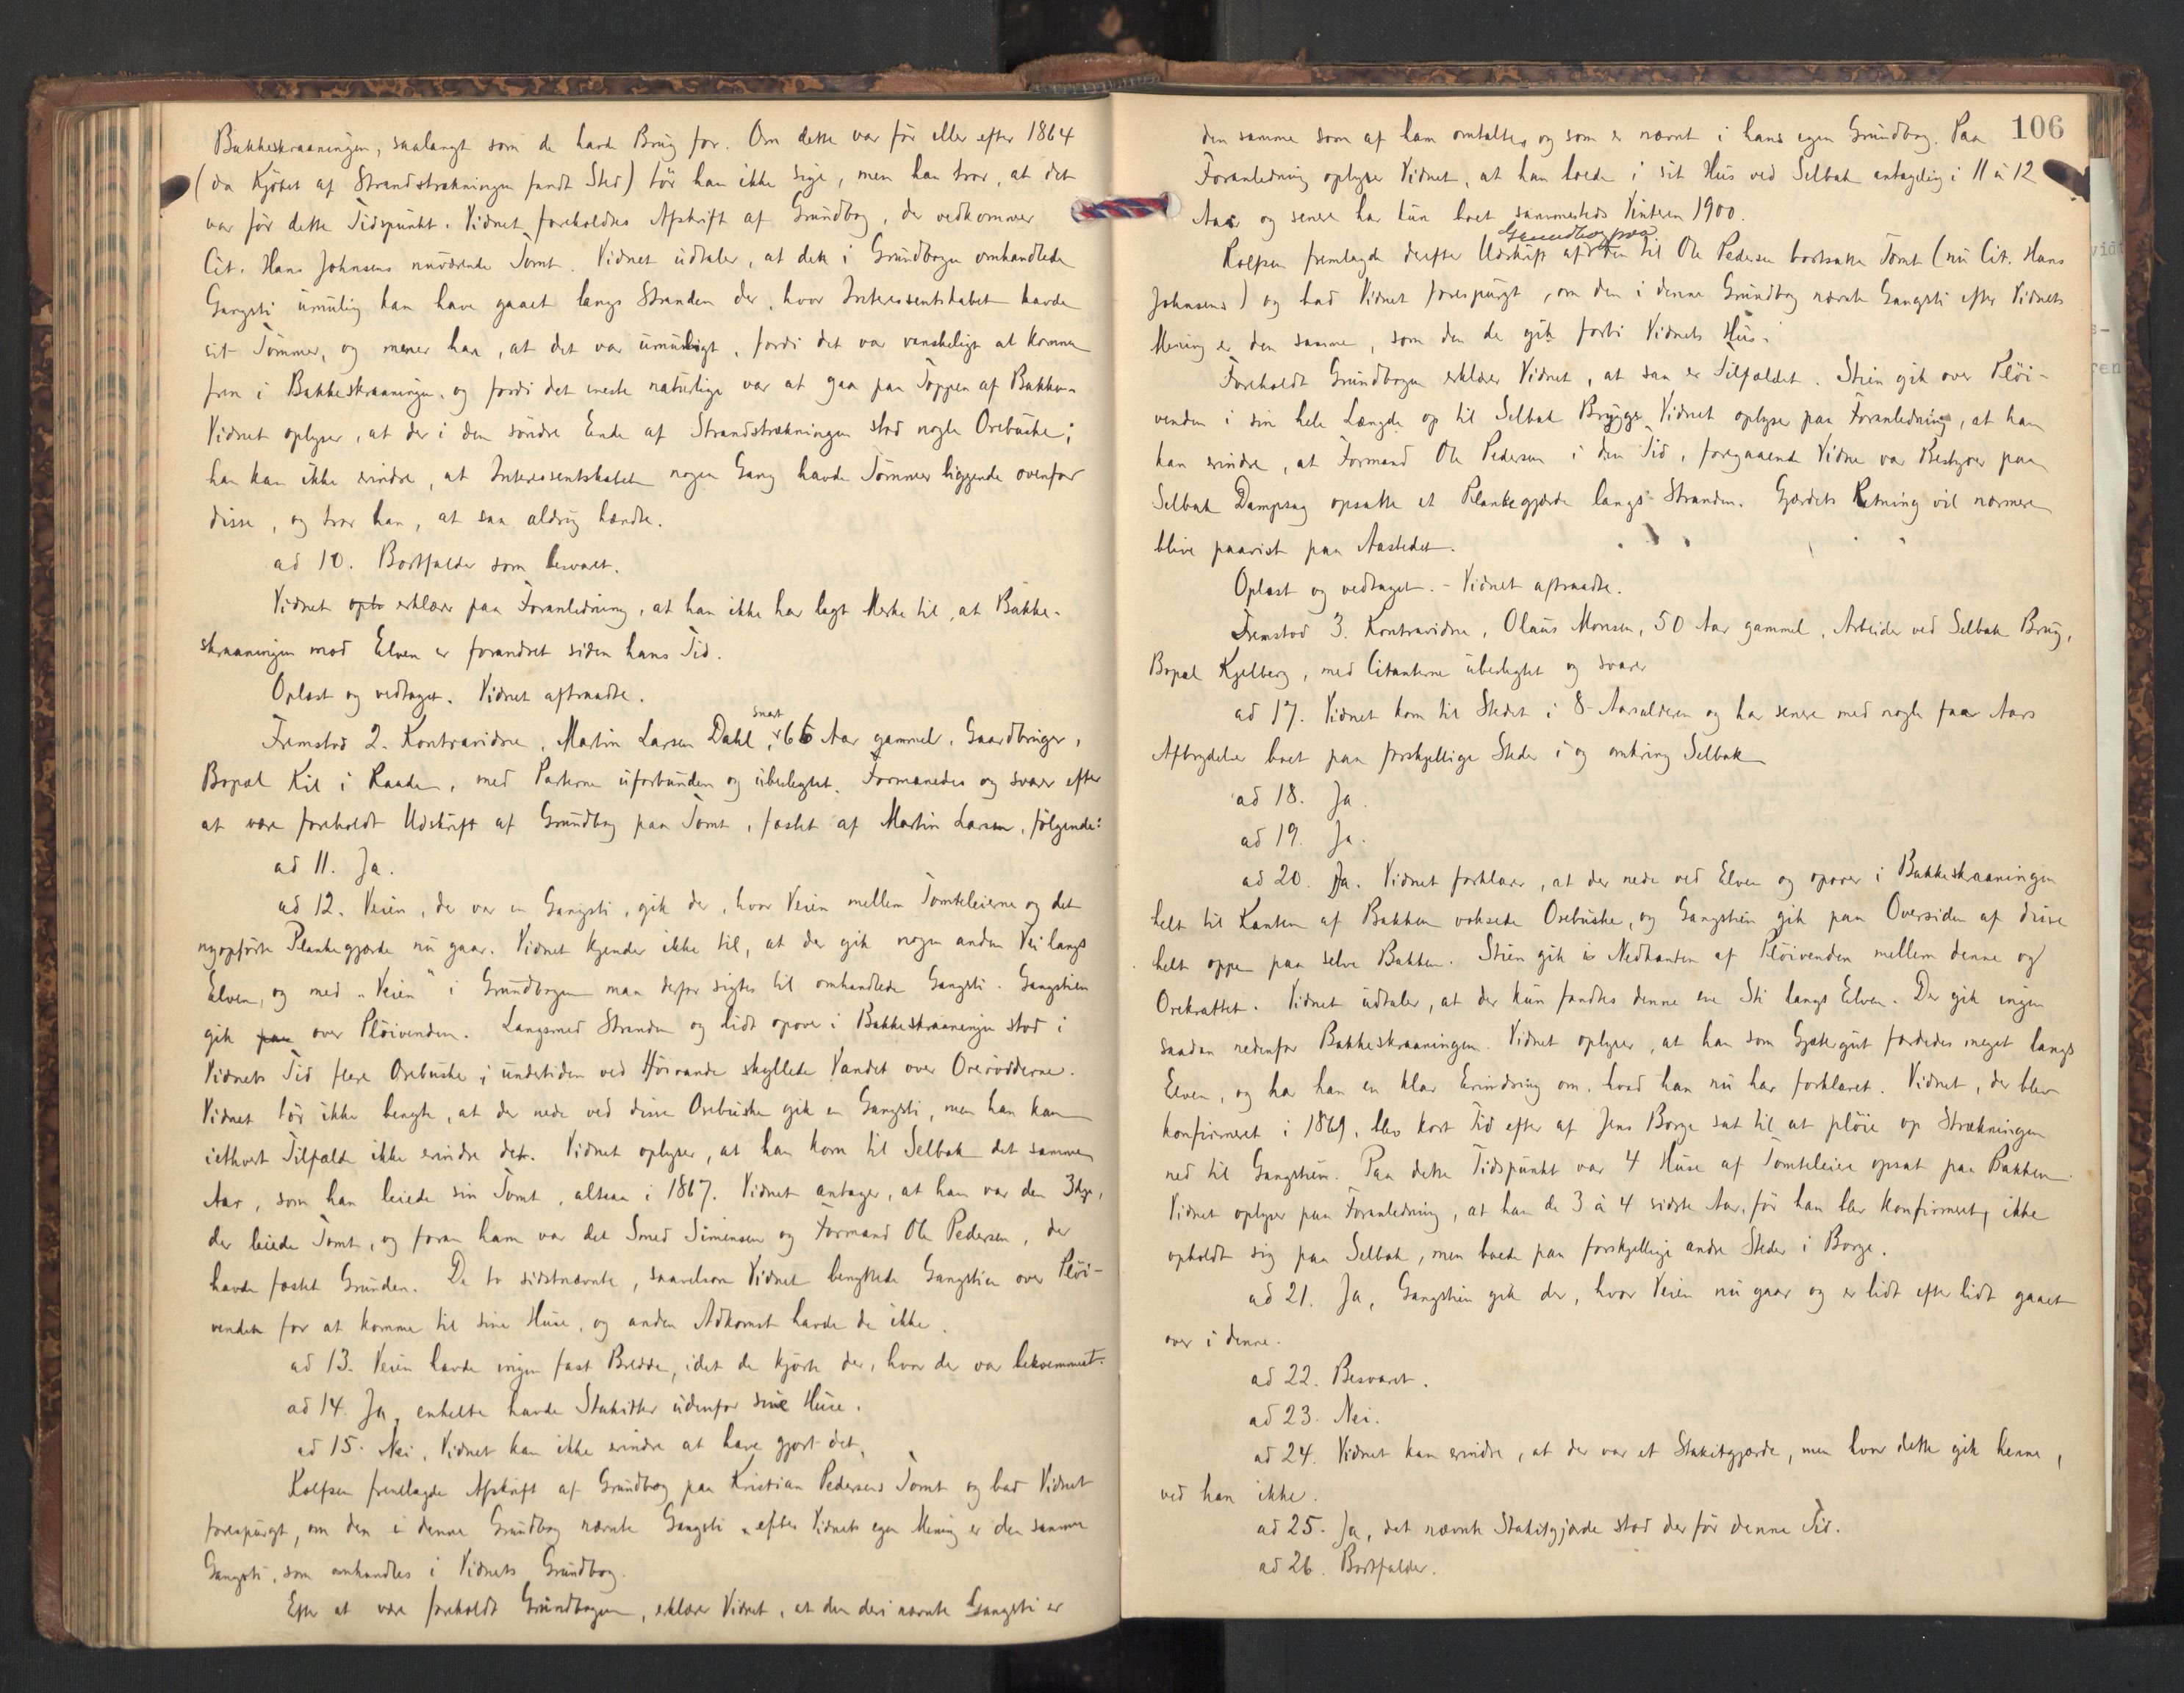 Bakkeskraaningen, saalangt som de havde Brug for. Om dette var før eller efter 1864
(da Kjøbet af Strandstrækningen fandt Sted) tør han ikke sige, men han tror, at det
var før dette Tidspunkt. Vidnet foreholdtes Afskrift af Grundbog, der vedkommer
Cit. Hans Johnsens nuværende Tomt. Vidnet udtaler, at den i Grundbogen omhandlede
Gangsti umulig kan have gaaet langs Stranden der, hvor Interessentskabet havde
sit Tømmer, og mener han, at det var umuligt, fordi det var vanskeligt at komme
frem i Bakkeskraaningen, og fordi det eneste naturlige var at gaa paa Toppen af Bakken.
Vidnet oplyser, at der i den søndre Ende af Strandstrækningen stod nogle Orebuske;
han kan ikke erindre, at Interessentskabet nogen Gang havde Tømmer liggende ovenfor
disse, og tror han, at saa aldrig hændte.
ad 10. Bortfalder som besvaret.
Vidnet opl erklærer paa Foranledning, at han ikke har lagt Merke til, at Bakke-
skraaningen mod Elven er forandret siden hans Tid.
Oplæst og vedtaget. Vidnet aftraadte.
Fremstod 2. Kontravidne, Martin Larsen Dahl, snart 66 Aar gammel, Gaardbruger,
Bopæl Kil i Raade, med Parterne uforbunden og ubeslegtet. Formanedes og svarer efter
at være foreholdt Udskrift af Grundbog paa Tomt, fæstet af Martin Larsen, følgende:
ad 11. Ja.
ad 12. Veien, der var en Gangsti, gik der, hvor Veien mellem Tomteleierne og det
nyopførte Plankegjærde nu gaar. Vidnet kjender ikke til, at der gik nogen anden Vei langs
Elven, og med „Veien" i Grundbogen maa derfor sigtes til omhandlede Gangsti. Gangstien
gik paa over Pløivenden. Langsmed Stranden og lidt opover i Bakkeskraaningen stod i
Vidnets Tid flere Orebuske; undertiden ved Høivande skyllede Vandet over Orerødderne.
Vidnet tør ikke benegte, at der nede ved disse Orebuske gik en Gangsti, men han kan
iethvert Tilfælde ikke erindre det. Vidnet oplyser, at han kom til Selbak det samme
Aar, som han leiede sin Tomt, altsaa i 1867. Vidnet antager, at han var den 3die,
der leiede Tomt, og foran ham var det Smed Simensen og Formand Ole Pedersen, der
havde fæstet Grunden. De to sidstnævnte, saavelsom Vidnet benyttede Gangstien over Pløi-
venden for at komme til sine Huse, og anden Adkomst havde de ikke.
ad 13. Veien havde ingen fast Bredde, idet de kjørte der, hvor der var bekvemmest.
ad 14. Ja, enkelte havde Stakitter udenfor sine Huse.
ad 15. Nei, Vidnet kan ikke erindre at have gjort det.
Rolfsen fremlagde Afskrift af Grundbog paa Kristian Pedersens Tomt og bad Vidnet
forespurgt, om den i denne Grundbog nævnte Gangsti efter Vidnets egen Mening er den samme
Gangsti, som omhandles i Vidnets Grundbog.
Efter at være foreholdt Grundbogen, erklærer Vidnet, at den deri nævnte Gangsti er
106
den samme som af ham omtaltes og som er nævnt i hans egen Grundbog. Paa
Foranledning oplyser Vidnet, at han boede i sit Hus ved Selbak antagelig i 11 à 12
Aar og senere har kun boet sammesteds Vinteren 1900.
Grundbog paa
Rolfsen fremlagde derefter Udskrift af den til Ole Pedersen bortsatte Tomt (nu Cit. Hans
Johnsens) og bad Vidnet forespurgt, om den i denne Grundbog nævnte Gangsti efter Vidnets
Mening er den samme, som den der gik forbi Vidnets Hus.
Foreholdt Grundbogen erklærer Vidnet, at saa er Tilfældet. Stien gik over Pløi-
venden i sin hele Længde op til Selbak Brygge. Vidnet oplyser paa Foranledning, at han
kan erindre, at Formand Ole Pedersen i den Tid, foregaaende Vidne var Bestyrer paa
Selbak Dampsag opsatte et Plankegjærde langs Stranden. Gjærdets Retning vil nærmere
blive paavist paa Aastedet.
Oplæst og vedtaget. - Vidnet aftraadte.
Fremstod 3. Kontravidne, Olaus Monsen, 50 Aar gammel, Arbeider ved Selbak Brug,
Bopæl Kjelberg, med Citanterne ubeslegtet og svarer
ad 17. Vidnet kom til Stedet i 8-Aarsalderen og har senere med nogle faa Aars
Afbrydelse boet paa forskjellige Steder i og omkring Selbak
ad 18. Ja.
ad 19. Ja.
ad 20. Ja. Vidnet forklarer, at der nede ved Elven og opover i Bakkeskraaningen
helt til Kanten af Bakken voksede Orebuske, og Gangstien gik paa Oversiden af disse
helt oppe paa selve Bakken. Stien gik i Nedkanten af Pløivenden mellem denne og
Orekrattet. Vidnet udtaler, at der kun fandtes denne ene Sti langs Elven. Der gik ingen
saadan nedenfor Bakkeskraaningen. Vidnet oplyser, at han som Gjætergut færdedes meget langs
Elven, og har han en klar Erindring om, hvad han nu har forklaret. Vidnet, der blev
konfirmeret i 1869, blev kort Tid efter af Jens Borge sat til at pløie op Strækningen
ned til Gangstien. Paa dette Tidspunkt var 4 Huse af Tomteleiere opsat paa Bakken.
Vidnet oplyser paa Foranledning, at han de 3 à 4 sidste Aar, før han blev konfirmeret, ikke
opholdt sig paa Selbak, men boede paa forskjellige andre Steder i Borge.
ad 21. Ja, Gangstien gik der, hvor Veien nu gaar og er lidt efter lidt gaaet
over i denne.
ad 22. Besvaret.
ad 23. Nei.
ad 24. Vidnet kan erindre, at der var et Stakitgjærde, men hvor dette gik henne,
ved han ikke.
ad 25. Ja, det nævnte Stakitgjærde stod der før denne Tid.
ad 26. Bortfalder.